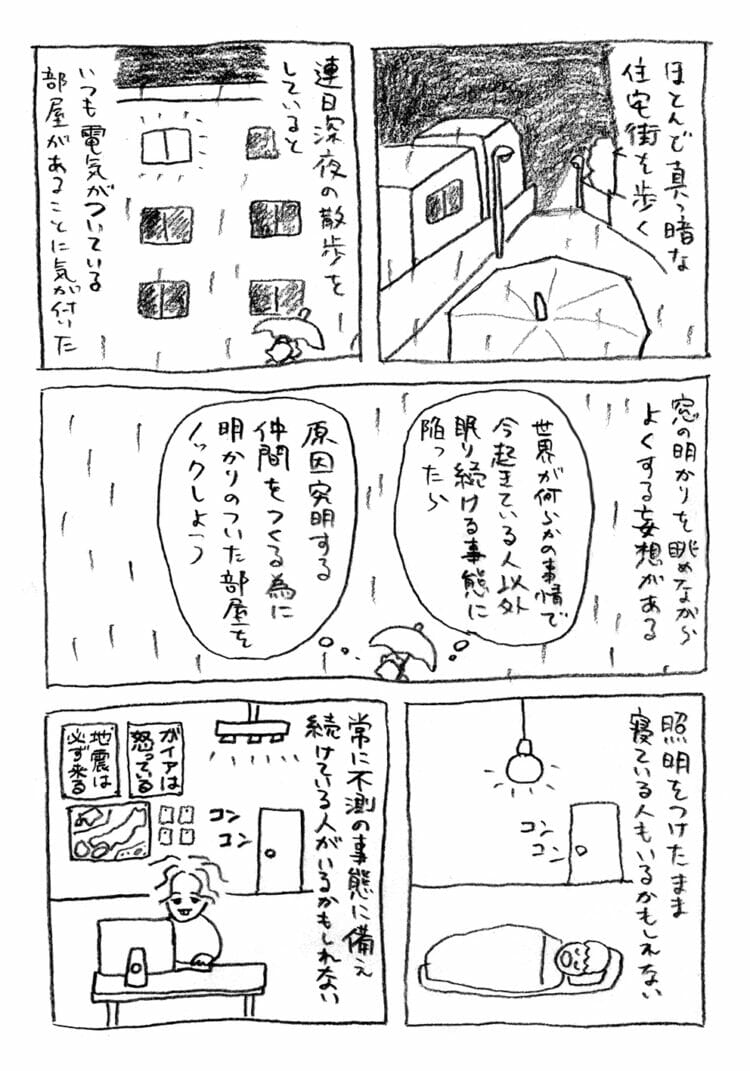 ほとんど真っ暗な
住宅街を歩く
連日深夜の散歩を
していると
いつも電気がついている
部屋があることに気が付いた
窓の明かりを眺めながら
よくする妄想がある
世界が何らかの事情で
今起きている人以外
眠り続ける事態に
陥ったら
原因究明する
仲間をつくる為に
明かりのついた部屋を
ノックしよう
照明をつけたまま
寝ている人もいるかもしれない
コン
コン
常に不測の事態に備え
続けている人がいるかもしれない
ガイアは
怒っている
地震は
必ず来る
コン
コン